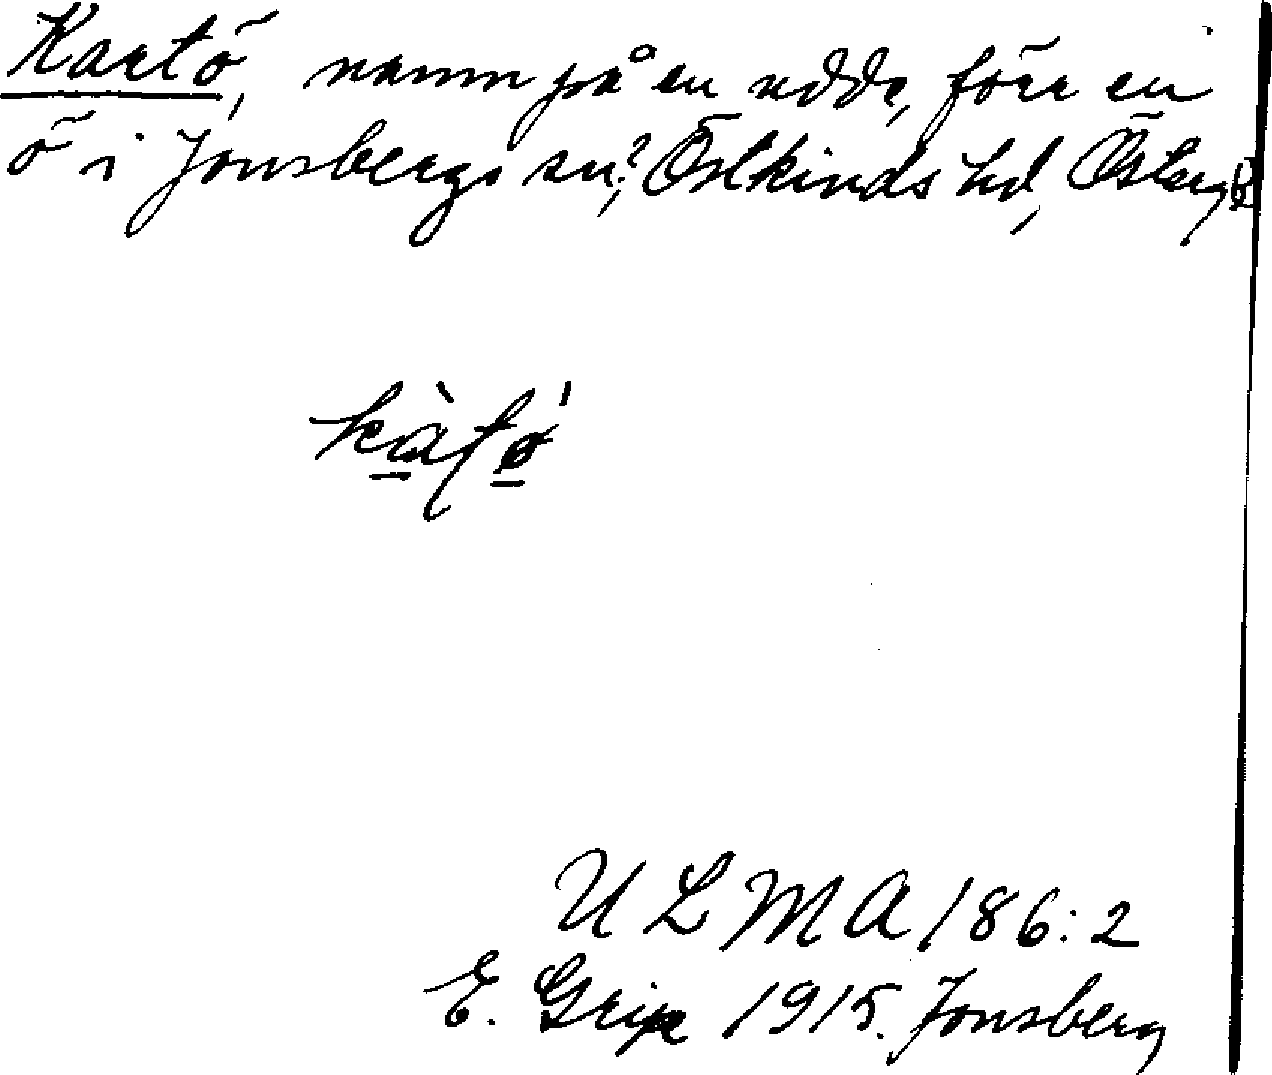 Kartö, namn på en udde, förr en
ö i Jonsbergs sn?, Östkinds hd, Österg
ULMA 186:2
E. Grip 1915. Jonsberg